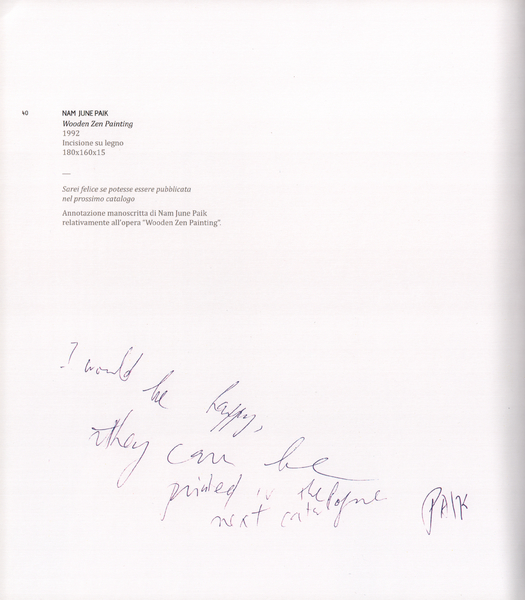 40
NAM JUNE PAIK
Wooden Zen Painting
1992
Incisione su legno
180x160x15
—
Sarei felice se potesse essere pubblicata
nel prossimo catalogo
Annotazione manoscritta di Nam June Paik
relativamente all'opera "Wooden Zen Painting".
I would be happy,
they can be
printed in the
next catalogue
PAIK